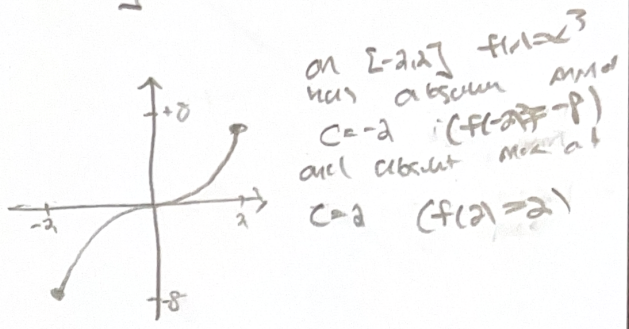 on [-2,2] f(x)=x³
has absolute min at
c=-2 (f(-2)=-8)
and absolut max at
c=2 (f(2)=2)
+8
-2 2
-8